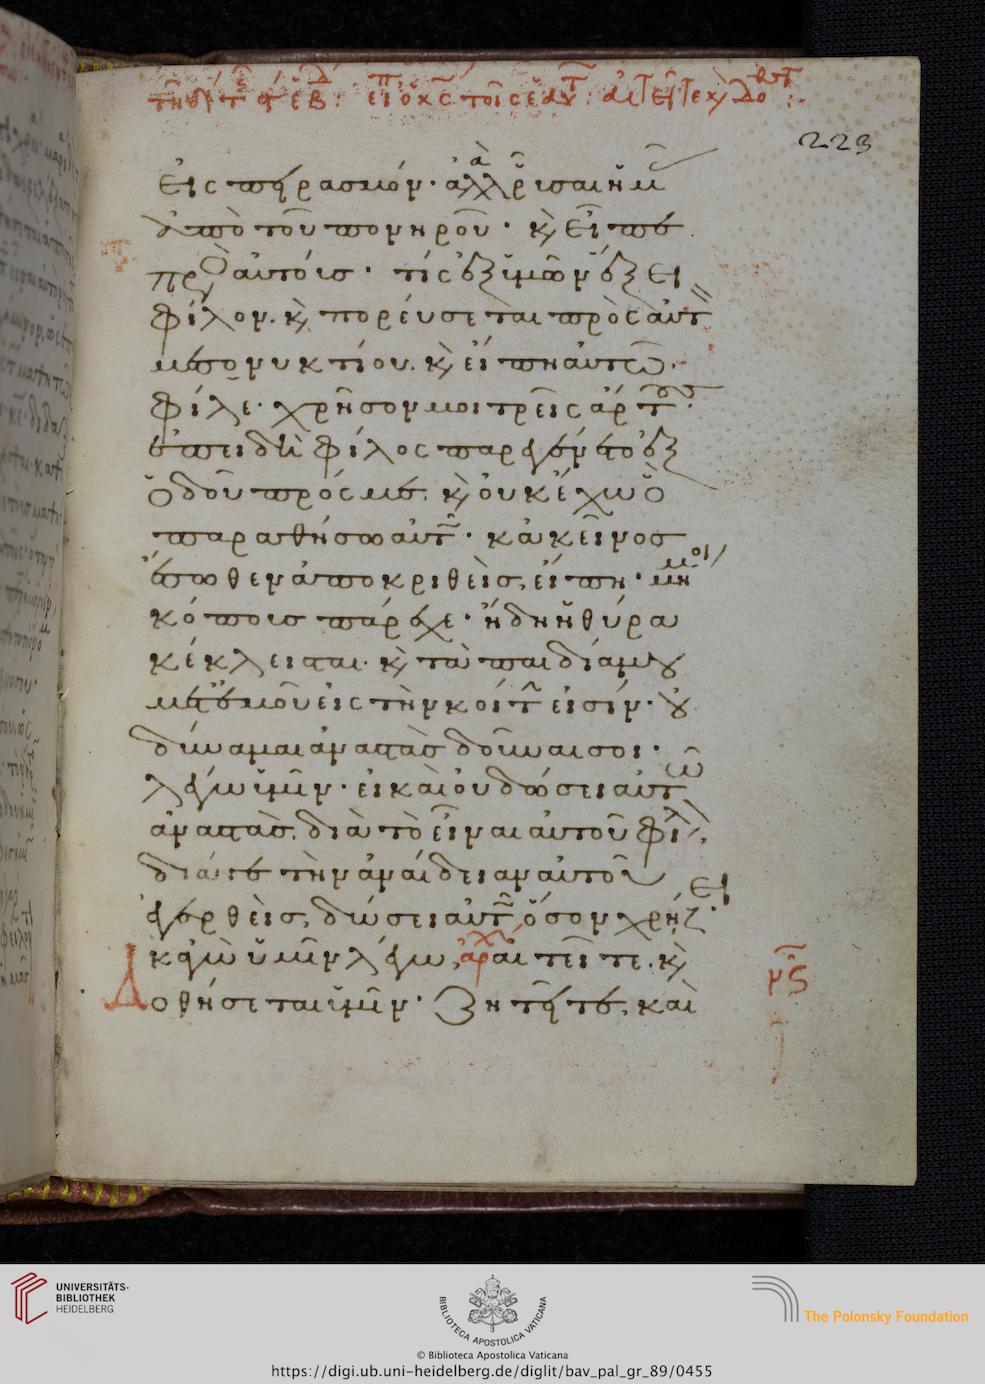 223
εἰς πειρασμόν· ἀλλὰ ῥῦσαι ἡμᾶς
ἀπὸ τοῦ πονηροῦ· κ εἶπε
πρὸς αὐτοῖς· τίς ἐξ ὑμῶν ἕξει
φίλον. κ πορεύσεται πρὸς αὐτ
μεσονυκτίου. κ εἴπη αὐτῶ·
φίλε· χρῆσον μοι τρεῖς ἄρτους·
ἐπειδὴ φίλος παρεγένετο ἐξ
ὁδοῦ πρός με. κ οὐκ ἔχω ὃ
παραθήσω αὐτῶ· κἀκεῖνος
ἔσωθεν ἀποκριθεὶς, εἴπη· μή μοι
κόπους πάρεχε· ἤδη ἡ θύρα
κέκλεισται. κ τὰ παιδία μου
μετ' ἐμοῦ εἰς τὴν κοίτην εἰσίν· οὐ
δύναμαι ἀναστὰς δοῦναι σοι·
λέγω ὑμῖν· εἰ καὶ οὐ δώσει αὐτῶ
ἀναστὰς, διὰ τὸ εἶναι αὐτοῦ φίλ
διά γε τὴν ἀναίδειαν αὐτοῦ
ἐγερθεὶς, δώσει αὐτῶ ὅσον χρήζει·
κἀγὼ ὑμῖν λέγω, αἰτεῖτε. κ
Δοθήσεται ὑμῖν· Ζητεῖτε, καὶ
UNIVERSITÄTS-
BIBLIOTHEK
HEIDELBERG
BIBLIOTECA APOSTOLICA VATICANA
© Biblioteca Apostolica Vaticana
The Polonsky Foundation
https://digi.ub.uni-heidelberg.de/diglit/bav_pal_gr_89/0455